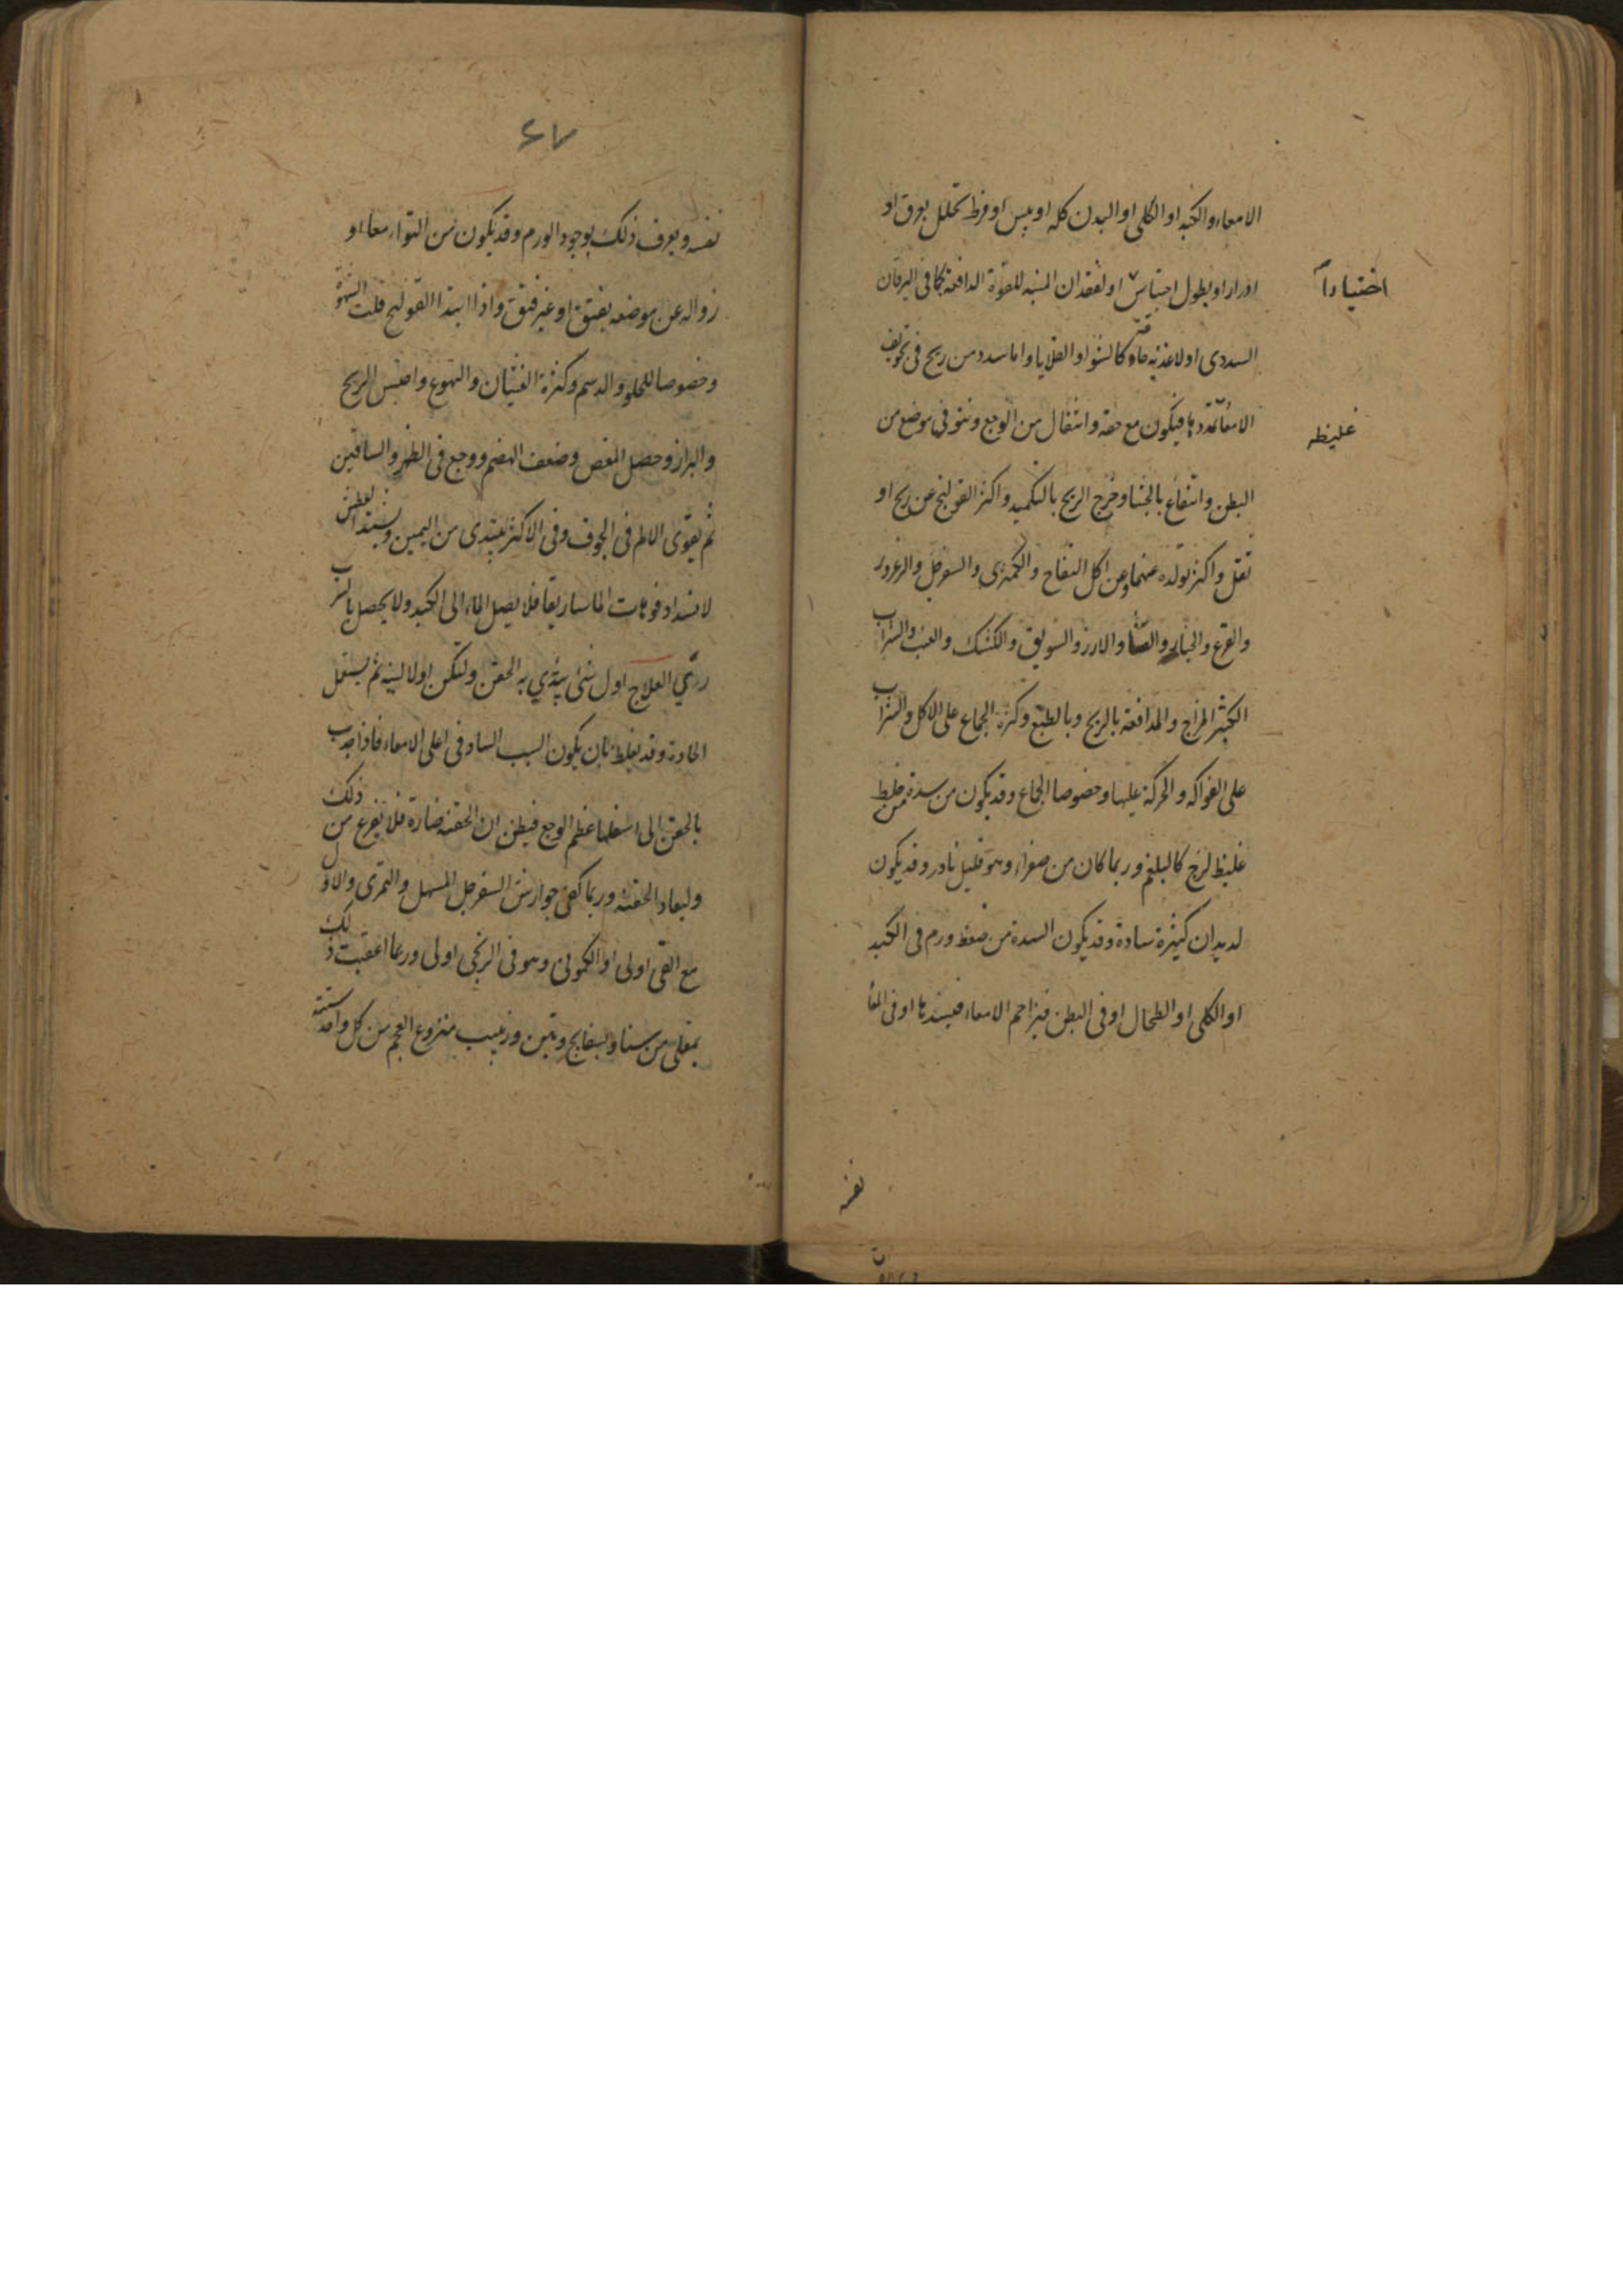 الامعاء والكبد او الكلى او البدن كله او يبس او فرط تحلل بعرق او
ادرار او بطول احتباس او لفقدان المنبه للقوة الدافعة كما فى اليرقان
اختياراً
السددى او لاغذيه جافة كالشوا و القلايا و اما سدد من ريح فى تجويف
الامعا تمددها فيكون مع خفه و انتقال من الوجع و نتو فى موضع من
غليظه
البطن و انتفاع بالجشا و خرج الريح بالتكميد و اكثر القولنج عن ريح او
ثفل و اكثر تولده عنهما و عن اكل التفاح و الكمثرى و السفرجل و الزعرور
والقرع والخيار والقثا و الارز و السويق و الكشك و العنب والشراب
الكثير المزاج و المدافعة بالريح و بالطبع و كثرة الجماع على الاكل و الشراب
على الفواكه و الحركة عليها و خصوصا الجماع و قد يكون من سدة من خلط
غليظ لزج كالبلغم و ربما كان من صفراء و هو قليل نادر و قد يكون
لديدان كثيرة سادة و قد يكون السدة من ضغط ورم فى الكبد
او الكلى او الطحال او فى البطن فيزاحم الامعاء فيسدها او فى المعا
نفسه
٦٧
نفسه و يعرف ذلك بوجود الورم و قد يكون من التواء معا او
زواله عن موضعه بفتق او غير فتق و اذا ابتدا القولنج قلت الشهوة
وخصوصا للحلو و الدسم و كثرة الغثيان و التهوع و احتبس الريح
و البراز و حصل المغص و ضعف الهضم و وجع فى الظهر و الساقين
ثم يقوى الالم فى الجوف و فى الاكثر يبتدى من اليمين و يشتد العطش
لانسداد فوهات الماساريقا فلا يصل الماء الى الكبد ولا يحصل بالشرب
رى العلاج اول شئ يبتدي به الحقن و لتكن اولا لينه ثم يستعمل
الحادة و قد يغلط بان يكون السبب الساد فى اعلى الامعاء فاذا جذب
بالحقن الى اسفلها عظم الوجع فيظن ان الحقنه ضارة فلا يفزع من ذلك
وليعاد الحقنه و ربما كفى جوارش السفرجل المسهل و التمرى والاول
مع القى اولى او الكمونى و هو فى الريحى اولى و ربما اعقبت ذلك
بمغلى من سنا و بسفايج و تين و زبيب منزوع العجم من كل واحد ستة